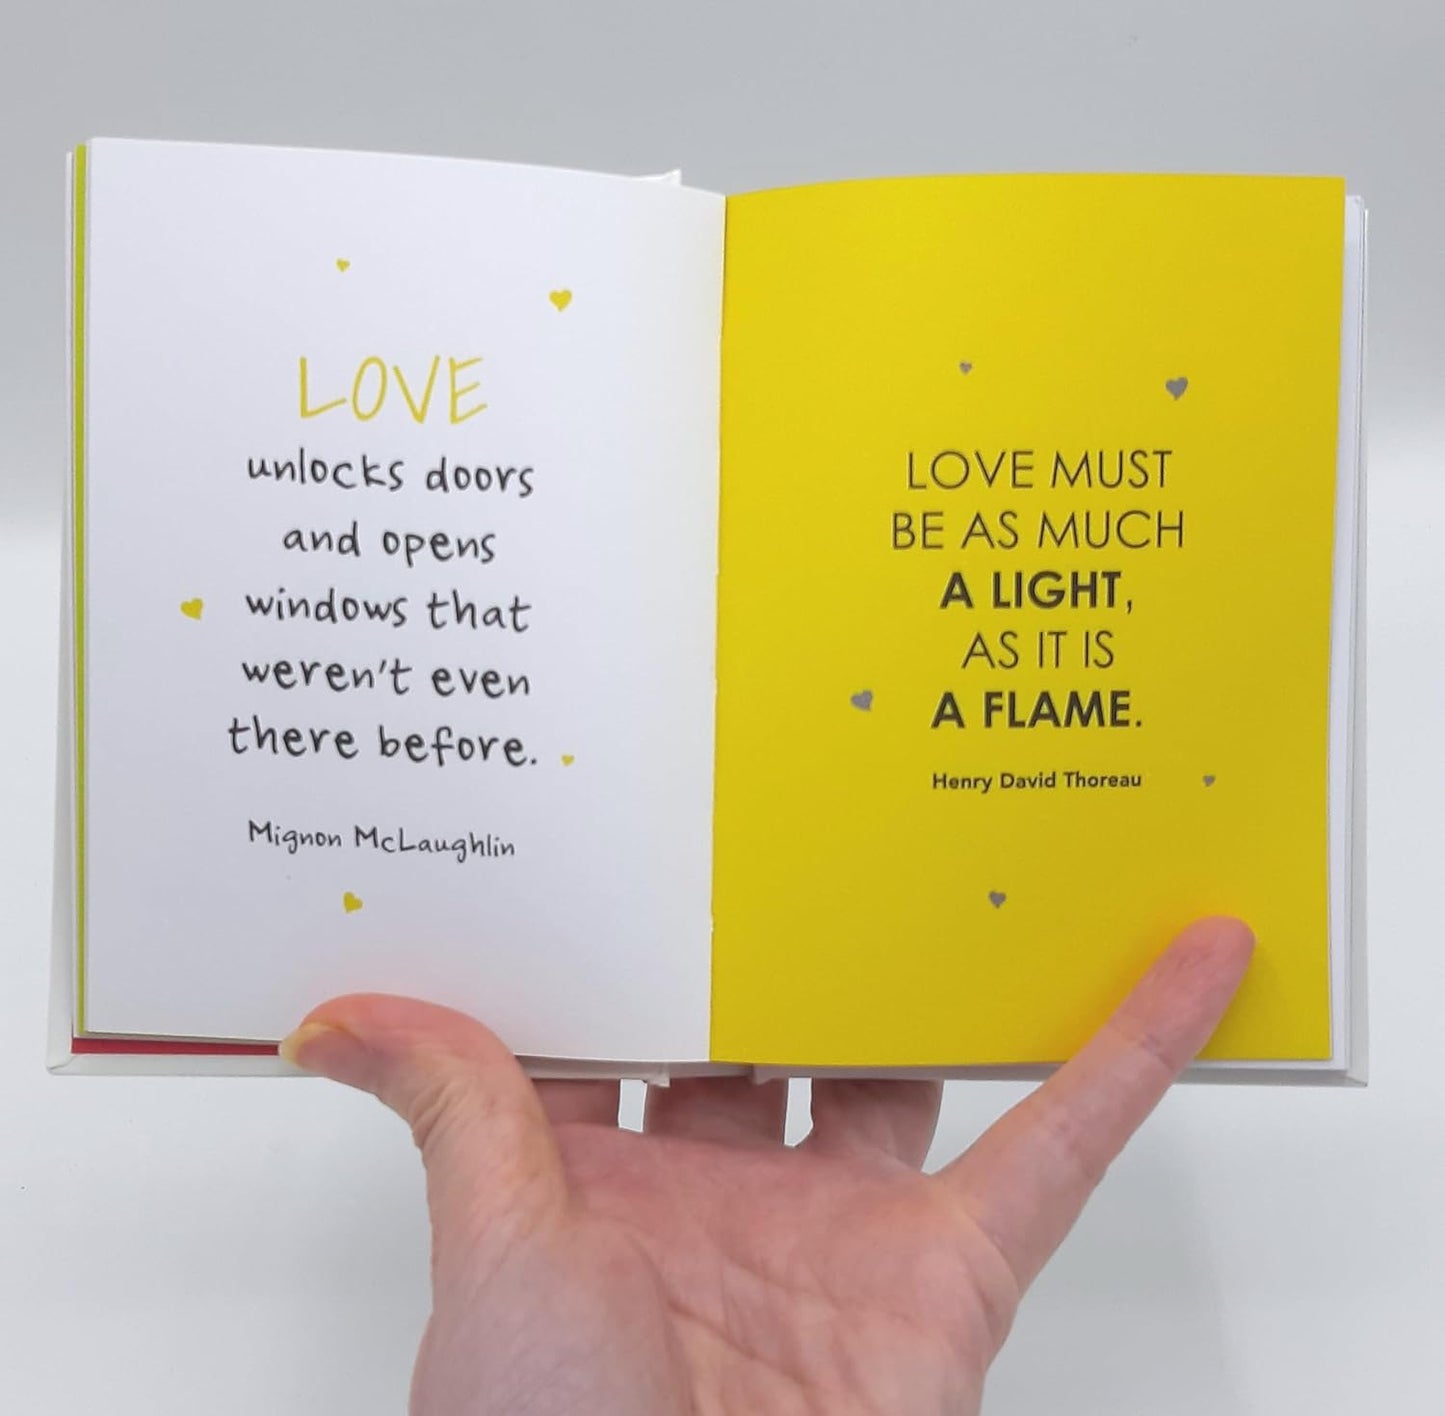 LOVE
unlocks doors
and opens
windows that
weren't even
there before.
Mignon McLaughlin
LOVE MUST
BE AS MUCH
A LIGHT,
AS IT IS
A FLAME.
Henry David Thoreau